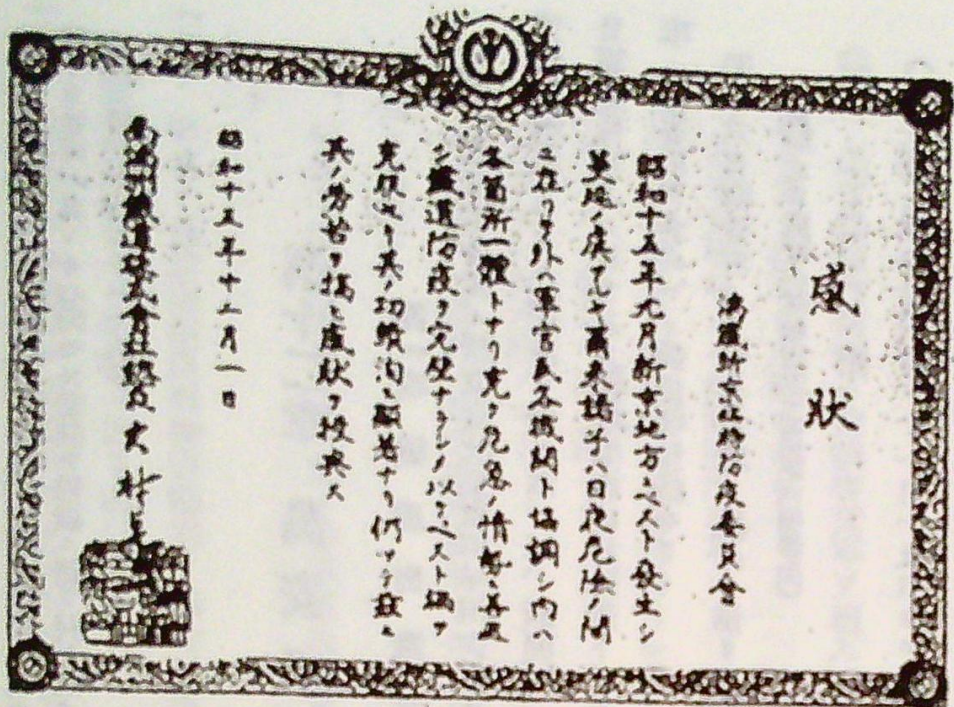 感狀
満鐵新京社務防疫委員會
昭和十五年九月新京地方ニペスト發生シ
猖ヲ極ムルヤ爾来諸子ハ日夜危險ノ間
ニ在リテ外ハ軍官民各機関ト協調シ内ハ
各箇所一體トナリ克ク危急ノ情勢ニ善處
シ鐵道防疫ヲ完璧ナラシメ以テペスト禍ヲ
克服セリ其ノ功績洵ニ顕著ナリ仍ッテ茲ニ
其ノ労苦ヲ犒ヒ感狀ヲ授與ス
昭和十五年十二月一日
南満洲鐵道株式會社總裁 大村卓一